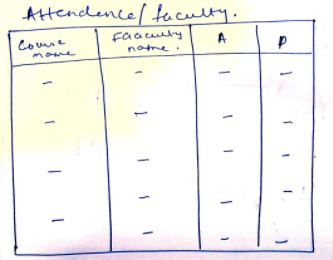 Attendence/ faculty.
Course name | Faaculty name. | A | P
— | — | — | —
— | — | — | —
— | — | — | —
— | — | — | —
— | — | — | —